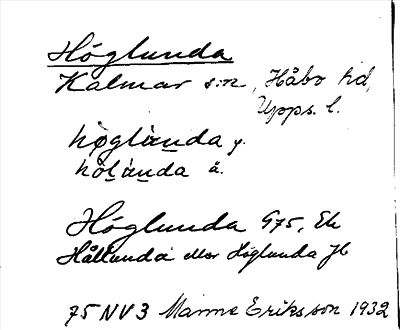 Höglunda
Kalmar s:n, Håbo hd,
Upps. l.
høglùnda y.
hölùnda ä.
Höglunda G75, Ek
Hållunda eller Höglunda Jb
75 NV3 Manne Eriksson 1932